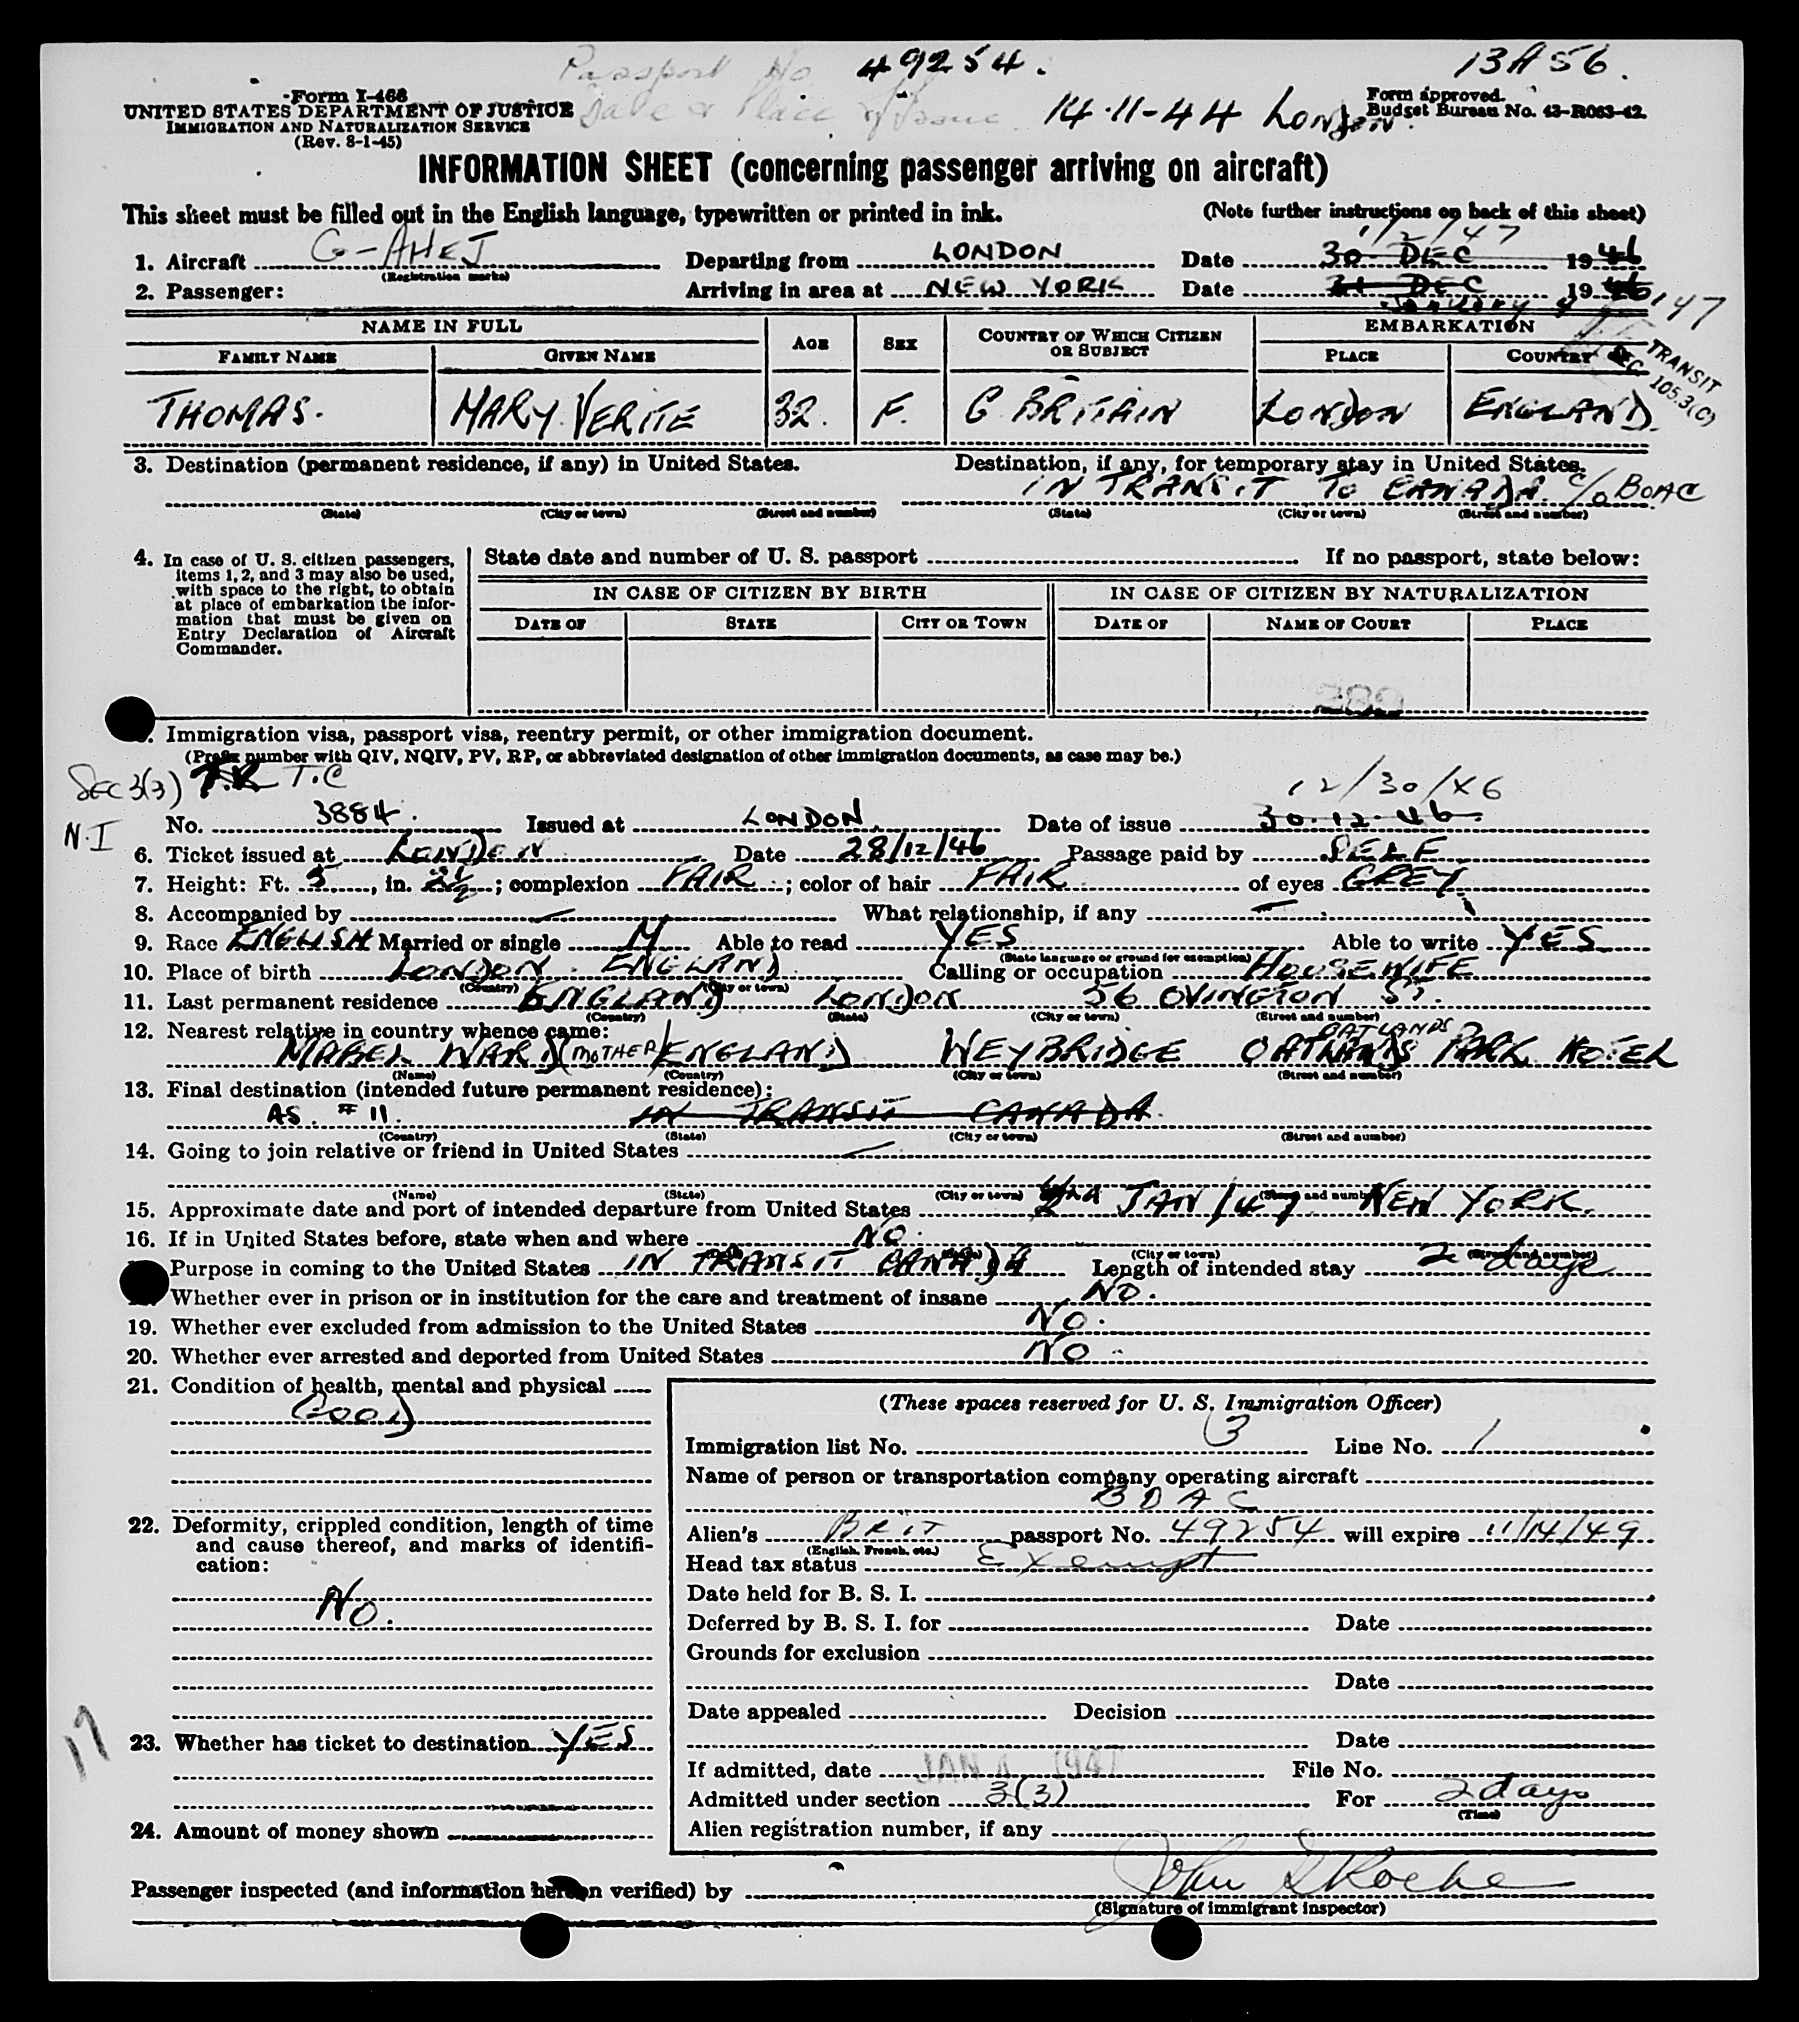 Passport No 49254. 13A56.
Form I-468
UNITED STATES DEPARTMENT OF JUSTICE
Date & Place of Issue 14.11-44 London.
IMMIGRATION AND NATURALIZATION SERVICE
(Rev. 8-1-45)
Form approved.
Budget Bureau No. 43-R063-42.
INFORMATION SHEET (concerning passenger arriving on aircraft)
This sheet must be filled out in the English language, typewritten or printed in ink. (Note further instructions on back of this sheet)
1/2/47
1. Aircraft G-AHEJ Departing from LONDON Date 30 DEC 1946
(Registration marks)
2. Passenger: Arriving in area at NEW YORK Date 31 DEC 1946
January 4 '47
NAME IN FULL AGE SEX COUNTRY OF WHICH CITIZEN OR SUBJECT EMBARKATION
FAMILY NAME GIVEN NAME PLACE COUNTRY
TRANSIT
SEC. 105.3(C)
THOMAS. MARY VERITE 32. F. G BRITAIN LONDON ENGLAND.
3. Destination (permanent residence, if any) in United States. Destination, if any, for temporary stay in United States.
IN TRANSIT TO CANADA C/o BOAC
(State) (City or town) (Street and number) (State) (City or town) (Street and number)
4. In case of U. S. citizen passengers, items 1, 2, and 3 may also be used, with space to the right, to obtain at place of embarkation the information that must be given on Entry Declaration of Aircraft Commander.
State date and number of U. S. passport If no passport, state below:
IN CASE OF CITIZEN BY BIRTH IN CASE OF CITIZEN BY NATURALIZATION
DATE OF STATE CITY OR TOWN DATE OF NAME OF COURT PLACE
Immigration visa, passport visa, reentry permit, or other immigration document.
(Prefix number with QIV, NQIV, PV, RP, or abbreviated designation of other immigration documents, as case may be.)
SEC 3(3) T.R T.C 12/30/46
N.I No. 3884. Issued at LONDON. Date of issue 30.12.46
6. Ticket issued at LONDON Date 28/12/46 Passage paid by SELF
7. Height: Ft. 5, in. 2½; complexion FAIR; color of hair FAIR of eyes GREY.
8. Accompanied by — What relationship, if any —
9. Race ENGLISH Married or single M Able to read YES Able to write YES
(State language or ground for exemption)
10. Place of birth LONDON. ENGLAND Calling or occupation HOUSEWIFE
(Country) (City or town)
11. Last permanent residence ENGLAND LONDON 56 OVINGTON ST.
(Country) (State) (City or town) (Street and number)
12. Nearest relative in country whence came:
OATLANDS
MABEL WARD (MOTHER) ENGLAND WEYBRIDGE OATLANDS PARK HOTEL
(Name) (Country) (City or town) (Street and number)
13. Final destination (intended future permanent residence):
AS # 11. IN TRANSIT CANADA.
(Country) (State) (City or town) (Street and number)
14. Going to join relative or friend in United States —
(Name) (State) (City or town) (Street and number)
15. Approximate date and port of intended departure from United States JAN/47 NEW YORK.
16. If in United States before, state when and where NO.
(City or town) (Street and number)
Purpose in coming to the United States IN TRANSIT CANADA Length of intended stay 2 days
Whether ever in prison or in institution for the care and treatment of insane NO.
19. Whether ever excluded from admission to the United States NO.
20. Whether ever arrested and deported from United States NO
21. Condition of health, mental and physical
GOOD
22. Deformity, crippled condition, length of time and cause thereof, and marks of identification:
NO.
17
23. Whether has ticket to destination YES
24. Amount of money shown
(These spaces reserved for U. S. Immigration Officer)
Immigration list No. 3 Line No. 1
Name of person or transportation company operating aircraft
BOAC
Alien's BRIT passport No. 49254 will expire 11/14/49
(English, French, etc.)
Head tax status Exempt
Date held for B. S. I.
Deferred by B. S. I. for Date
Grounds for exclusion
Date
Date appealed Decision
Date
If admitted, date JAN 4 1947 File No.
Admitted under section 3(3) For 2 days
(Time)
Alien registration number, if any
Passenger inspected (and information hereon verified) by John Roche
(Signature of immigrant inspector)